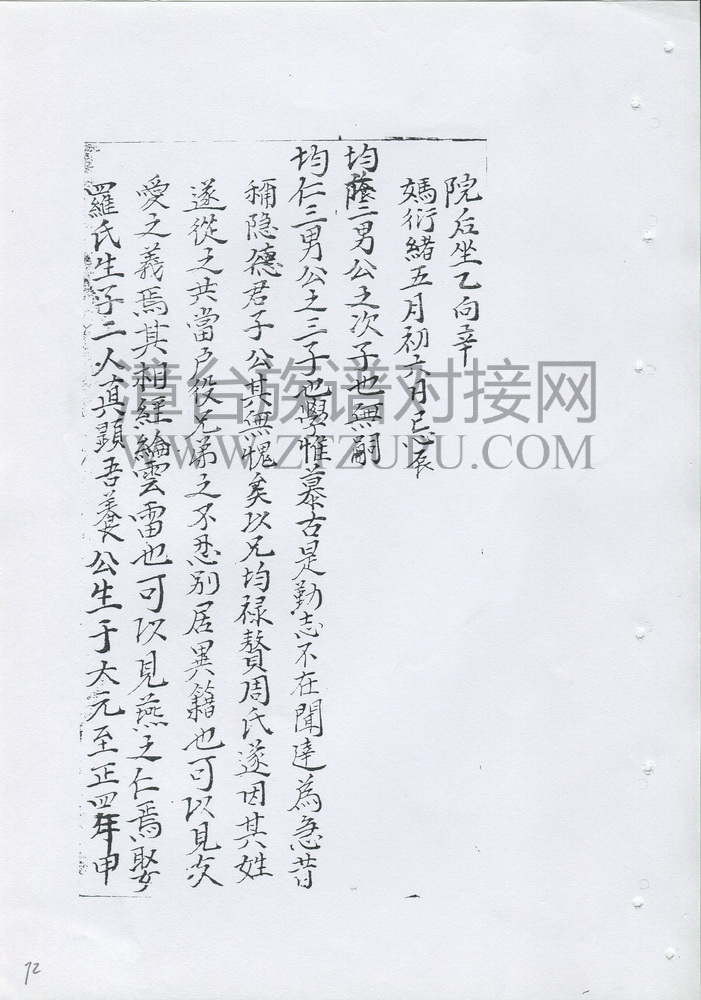 院后坐乙向辛
媽衍緒五月初六日忌辰
均蔭二男公之次子也無嗣
均仁三男公之三子也學惟慕古是勤志不在聞達為急昔
稱隐德君子公其無愧矣以兄均禄贅周氏遂因其姓
遂從之共當户役兄弟之不忍别居異籍也可以見次
愛之義焉其相經綸雲雷也可以見燕之仁焉娶
羅氏生子二人真顕吾養公生于大元至正四年甲
漳台族谱对接网
WWW.ZTZUPU.COM
72